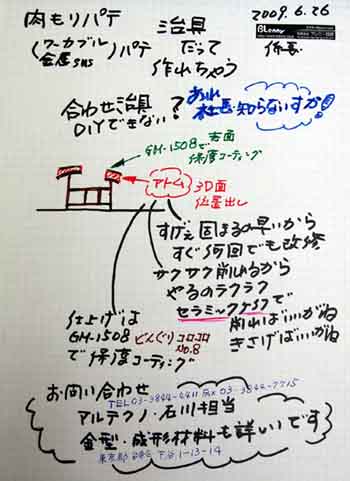 2009.6.26
肉もりパテ
(ワーカブル)パテ
金属
治具
だって
作れちゃう
係長
合わせ治具?
DIYできない?
あれ
社長知らないすか!
GM-1508で
保護コーティング
アトム
3D面
位置出し
すげぇ固まるの早いから
すぐ何回でも改修
サクサク削れるから
やるのラクラク
セラミックナイフで
削ればいいがね
きさげばいいがね
仕上げは
GM-1508
どんぐりコロコロ
No.8
で保護コーティング
お問い合わせ
TEL 03-3844-4411 FAX 03-3844-7715
アルテクノ・石川担当
金型・成形材料も詳しいです
東京都台東区下谷1-13-14